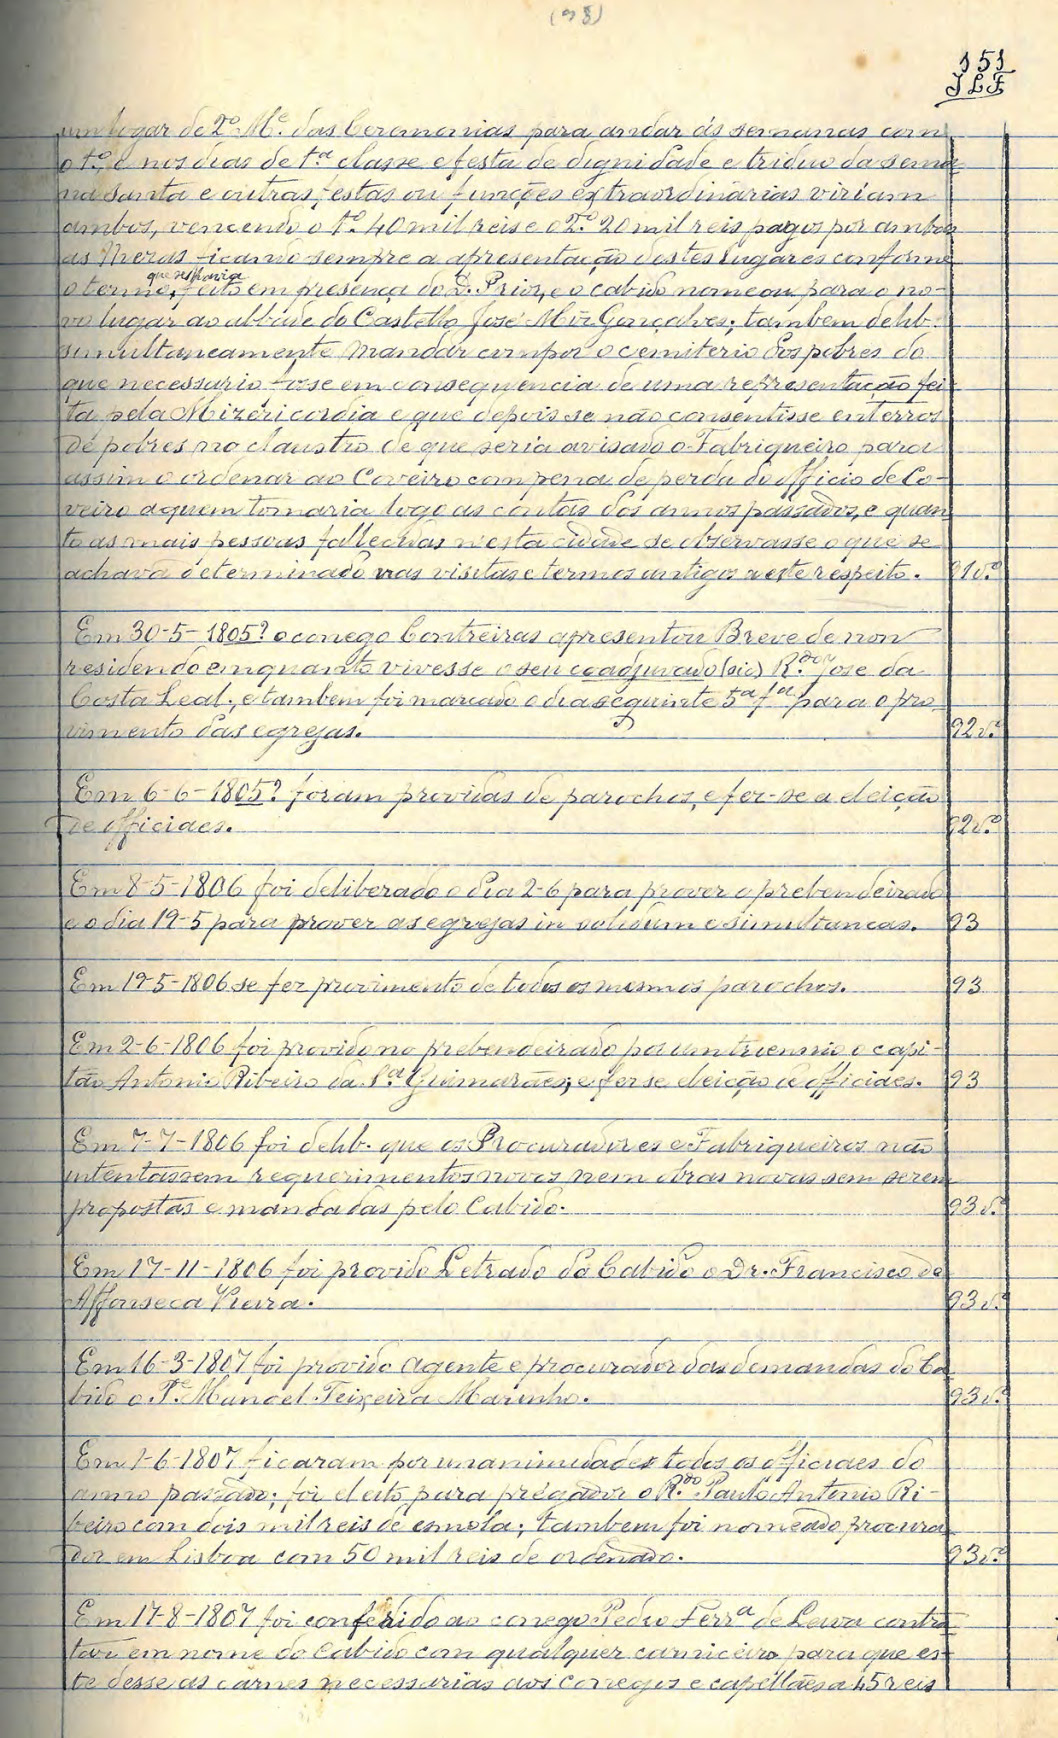 (98)
151
JLF
um logar de 2.º M.e das Ceremonias para andar ás semanas com
o 1.º, e nos dias de 1.ª classe e festa de dignidade e triduo da sema
na santa e outras festas ou funções extraordinarias viriam
ambos, vencendo o 1.º 40 mil reis e o 2.º 20 mil reis pagos por ambas
as Mezas ficando sempre a apresentação destes lugares conforme
que se havia
o termo, feito em presença do D. Prior, e o cabido nomeou para o no-
vo lugar ao abbade do Castello José Mīz Gonçalves; tambem delib.
simultaneamente mandar compor o cemiterio dos pobres do
que necessario fosse em consequencia de uma representação fei
ta pela Mizericordia e que depois se não consentisse enterros
de pobres no claustro de que seria avisado o Fabriqueiro para
assim o ordenar ao Coveiro com pena de perda do officio de Co-
veiro a quem tomaria logo as contas dos annos passados, e quan
to as mais pessoas fallecidas n'esta cidade se observasse o que se
achava determinado nas visitas e termos antigos a este respeito. 91v.º
Em 30-5-1805? o conego Contreiras apresentou Breve de non
residendo emquanto vivesse o seu coadjuvado (sic) R.do José da
Costa Leal; e tambem foi marcado o dia seguinte 5.ª f.ª para o pro
vimento das egrejas. 92v.º
Em 6-6-1805? foram providas de parochos, e fez-se a eleição
de officiaes. 92v.º
Em 8-5-1806 foi deliberado o dia 2-6 para prover o prebendeirado
e o dia 19-5 para prover as egrejas in solidum e simultaneas. 93
Em 19-5-1806 se fez provimento de todos os mesmos parochos. 93
Em 2-6-1806 foi provido no prebendeirado por um triennio o capi-
tão Antonio Ribeiro da S.ª Guimarães; e fez se eleição de officiaes. 93
Em 7-7-1806 foi delib. que os Procuradores e Fabriqueiros não
intentassem requerimentos novos nem obras novas sem serem
propostas e mandadas pelo Cabido. 93v.º
Em 17-11-1806 foi provido Letrado do Cabido o Dr. Francisco de
Affonseca Vieira. 93v.º
Em 16-3-1807 foi provido agente e procurador das demandas do Ca
bido o P.e Manoel Teixeira Marinho. 93v.º
Em 1-6-1807 ficaram por unanimidade todos os officiaes do
anno passado; foi eleito para pregador o R.do Paulo Antonio Ri-
beiro com dois mil reis de esmola; tambem foi nomeado procura
dor em Lisboa com 50 mil reis de ordenado. 93v.º
Em 17-8-1807 foi conferido ao conego Pedro Ferr.ª de Leiva contra
tar em nome do Cabido com qualquer carniceiro para que es-
te desse as carnes necessarias aos conegos e capellães a 45 reis